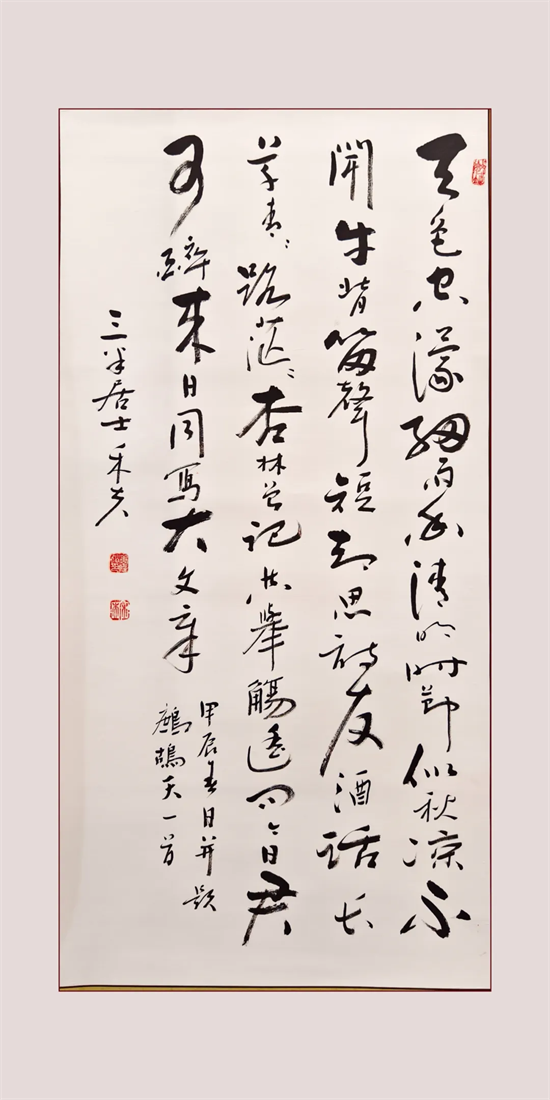 天色空濛細雨香清明時節似秋凉不
聞牛背笛聲短却思詩友酒話長
草青青路茫茫杏林曾記共舉觴遥問今日君
可醉来日同寫大文章
甲辰春日并題
鷓鴣天一首
三半居士禾夫